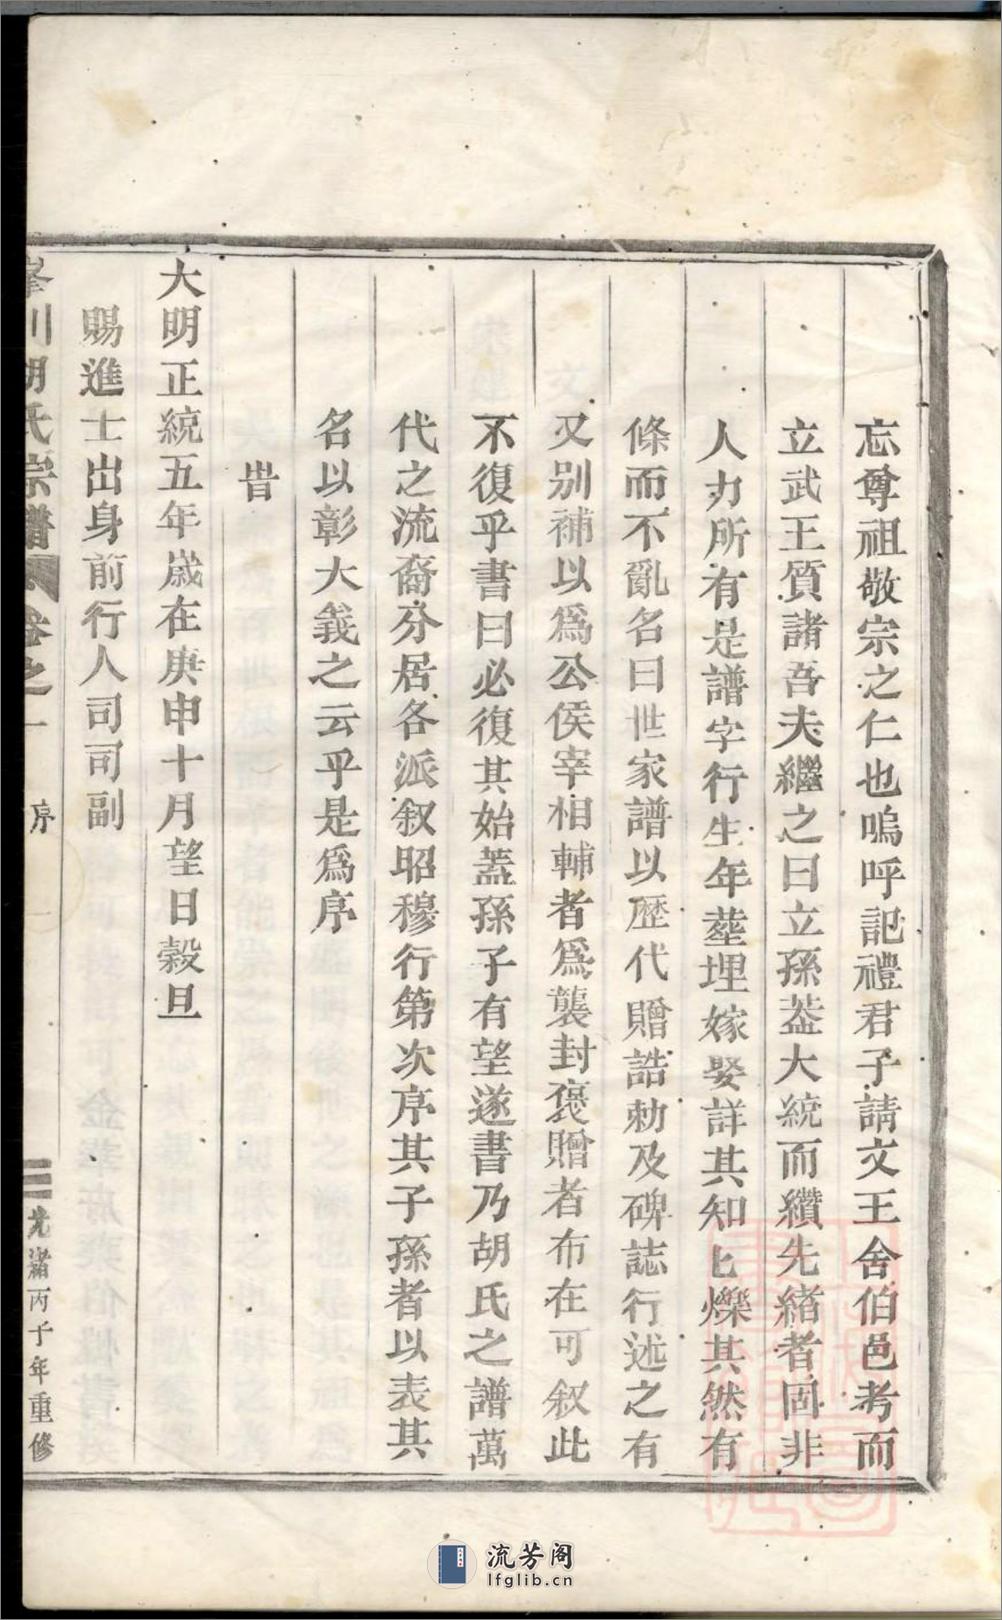 忘尊祖敬宗之仁也嗚呼記禮君子請文王舍伯邑考而
立武王質諸吾夫繼之曰立孫葢大統而纘先緒者固非
人力所有是譜字行生年塟埋嫁娶詳其知匕爍其然有
條而不亂名曰世家譜以歷代贈誥勅及碑誌行述之有
又别補以爲公侯宰相輔者爲襲封褒贈者布在可叙此
不復乎書曰必復其始葢孫子有望遂書乃胡氏之譜萬
代之流裔分居各派叙昭穆行第次序其子孫者以表其
名以彰大義之云乎是爲序
旹
大明正統五年嵗在庚申十月望日榖旦
賜進士出身前行人司司副
峯川胡氏宗譜 卷之一 序 光緒丙子年重修
流芳阁
lfglib.cn